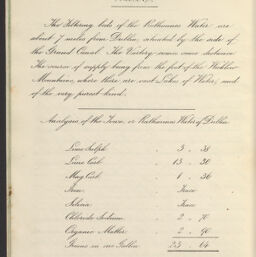 The Filtering beds of the Rathmines Water are
about 7 miles from Dublin, situated by the side of
the Grand Canal. The Victory some once distance
The source of supply being from the foot of the Wicklow
Mountains, where there are vast Lakes of Water, and
of the very purest kind.
Analysis of the Town, or Rathmines Water of Dublin
Lime Sulph . 3 . 38
Lime Carb . 13 . 30
Mag Carb . 1 . 36
Iron . Trace
Silica . Trace
Chloride Sodium . 2 . 70
Organic Matter . 2 . 90
Grains in one Gallon 23 . 64